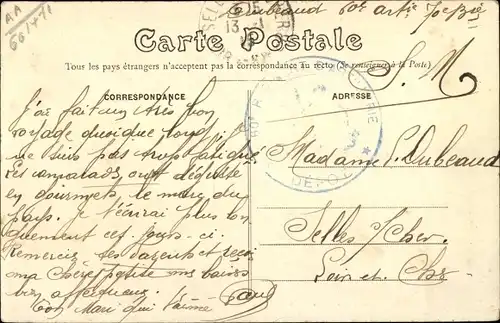 AA
66/471
Dubeaud 60e artie 7e Bie
13 -1
Carte Postale
Tous les pays étrangers n'acceptent pas la correspondance au recto (Se renseigner à la Poste)
F. M.
CORRESPONDANCE
ADRESSE
DÉPOT
J'ai fait un très bon
voyage quoique long
ne suis pas trop fatigué
les camarades ont dégusté
en gourmets le marc du
pays. Je t'écrirai plus lon
guement ces jours-ci.
Remercie
ma Chère petite mes baisers
bien affectueux.
Ton Mari qui t'aime
Paul
Madame P. Dubeaud
Selles s/Cher
Loir et Cher